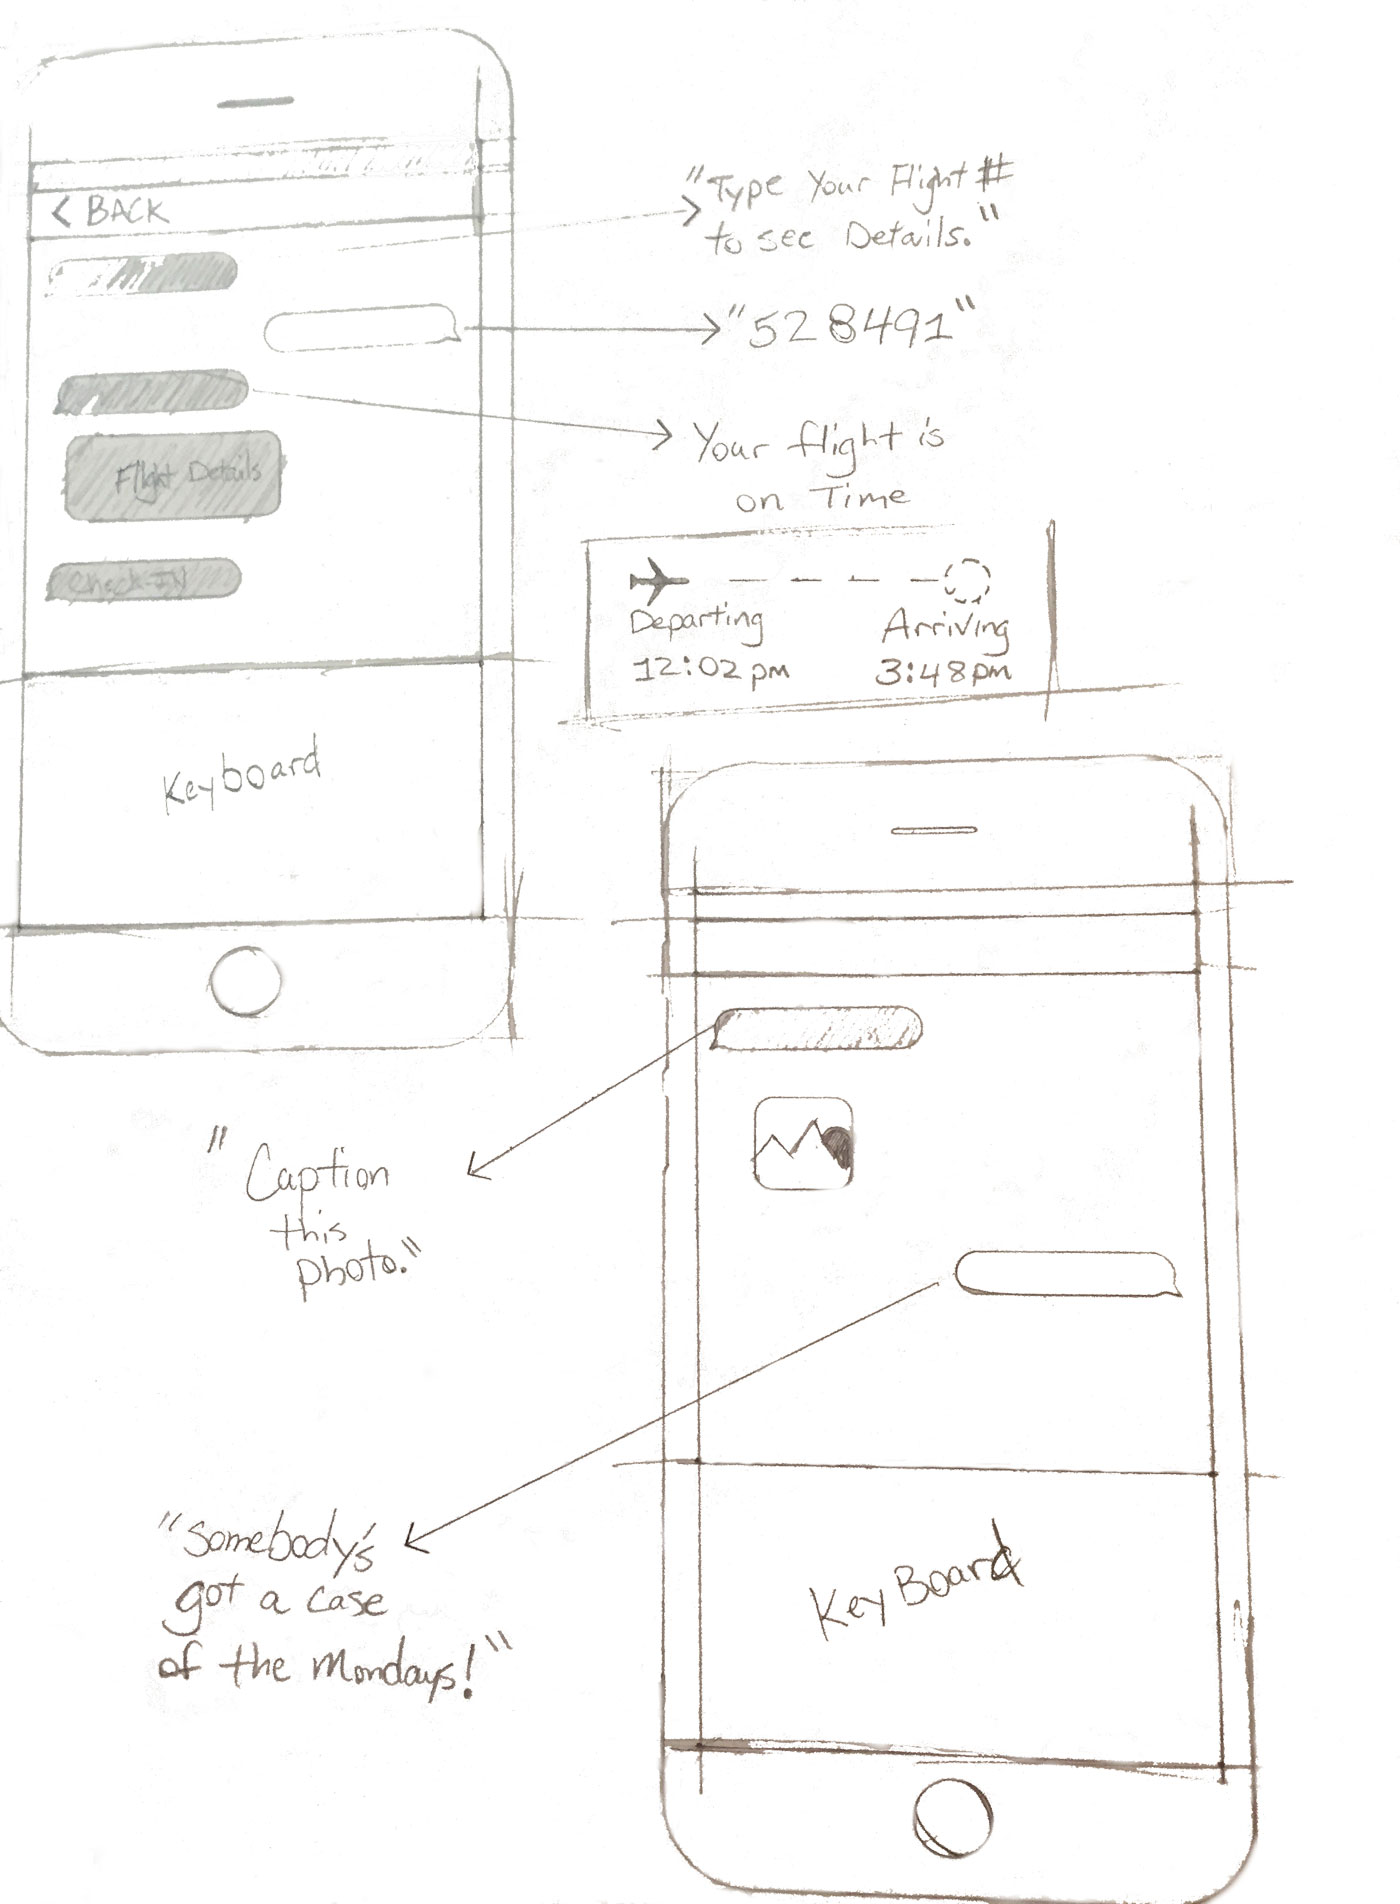 < BACK
Flight Details
Check-IN
Keyboard
"Type Your Flight #
to see Details."
"528491"
Your flight is
on Time
Departing
12:02pm
Arriving
3:48pm
"Caption
this
photo."
"Somebody's
got a case
of the Mondays!"
KeyBoard